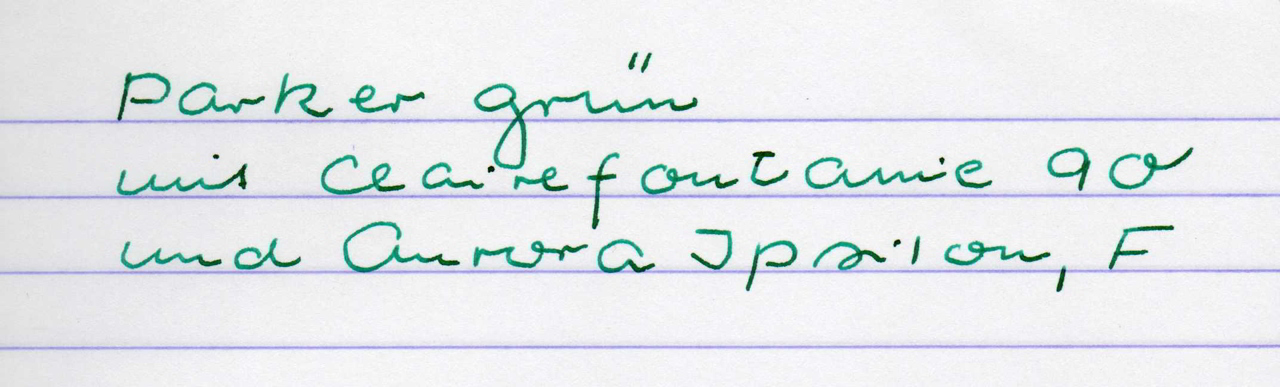 Parker grün
mit Clairefontaine 90
und Aurora Ipsilon, F